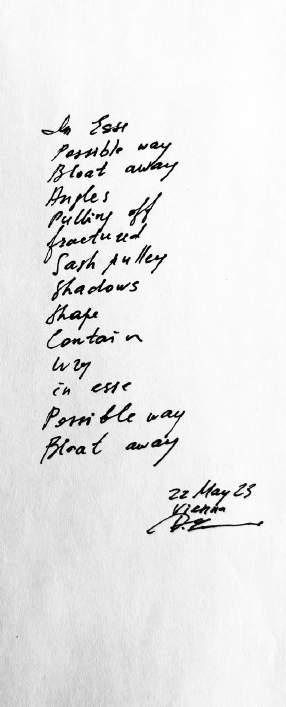 In Esse
Possible way
Bloat away
Angles
Pulling off
fractured
Sash pulley
Shadows
Shape
Contain
in esse
Possible way
Bloat away
22 May 23
Vienna